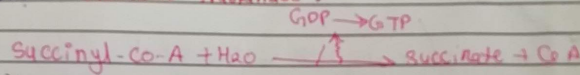 GDP → GTP
Succinyl-Co-A + H2O → succinate + Co A